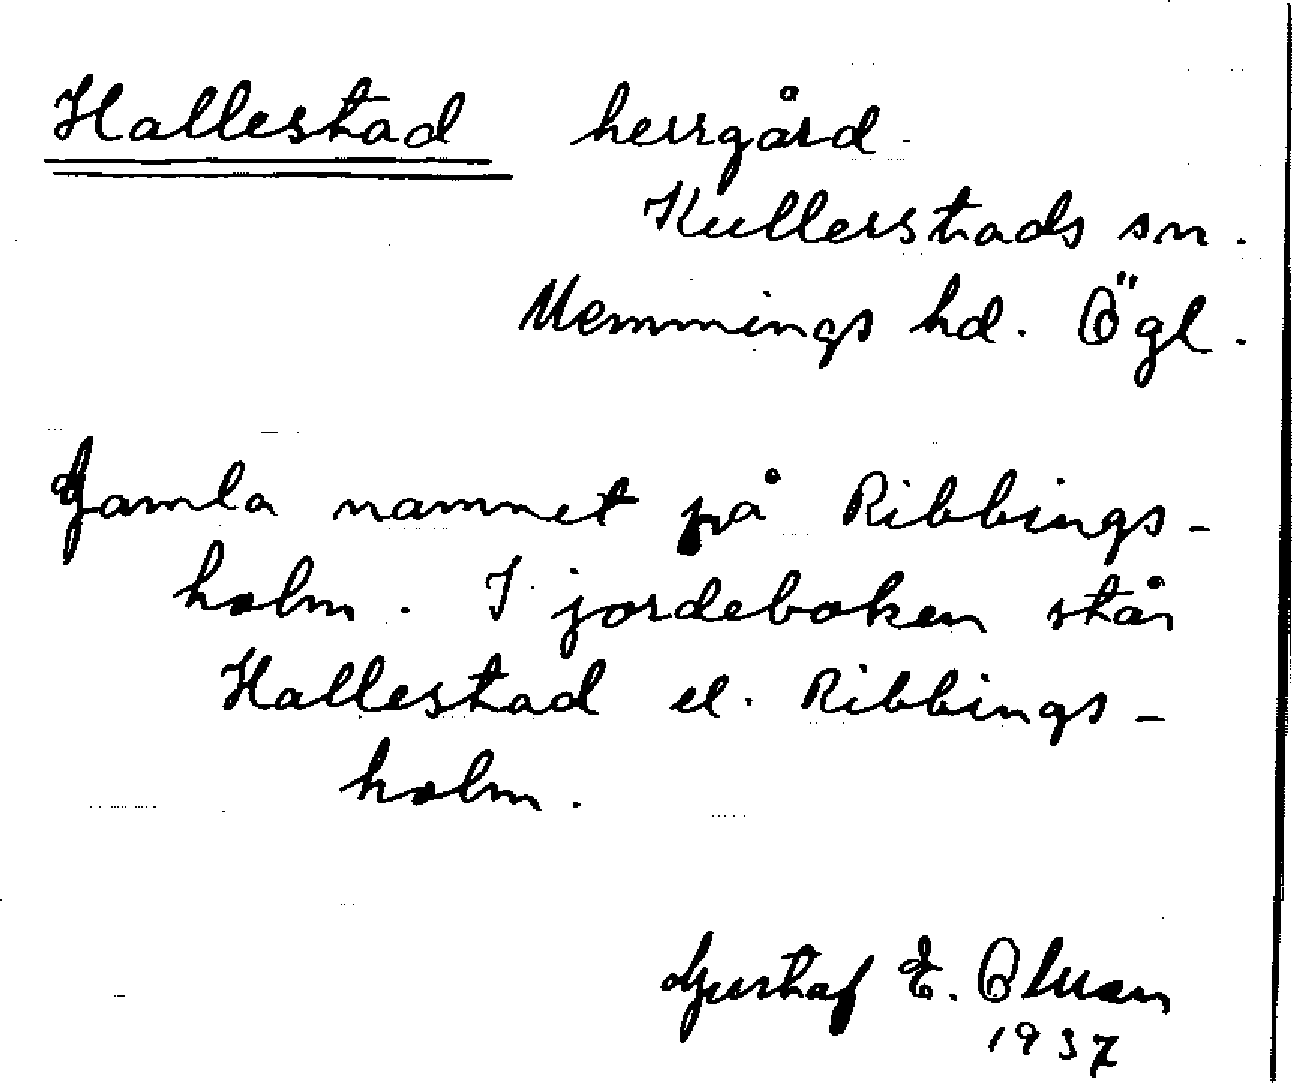 Hallestad herrgård.
Kullerstads sn.
Memmings hd. Ögl.
Gamla namnet på Ribbings-
holm. I jordeboken står
Hallestad el. Ribbings-
holm.
Gustaf E.
1937